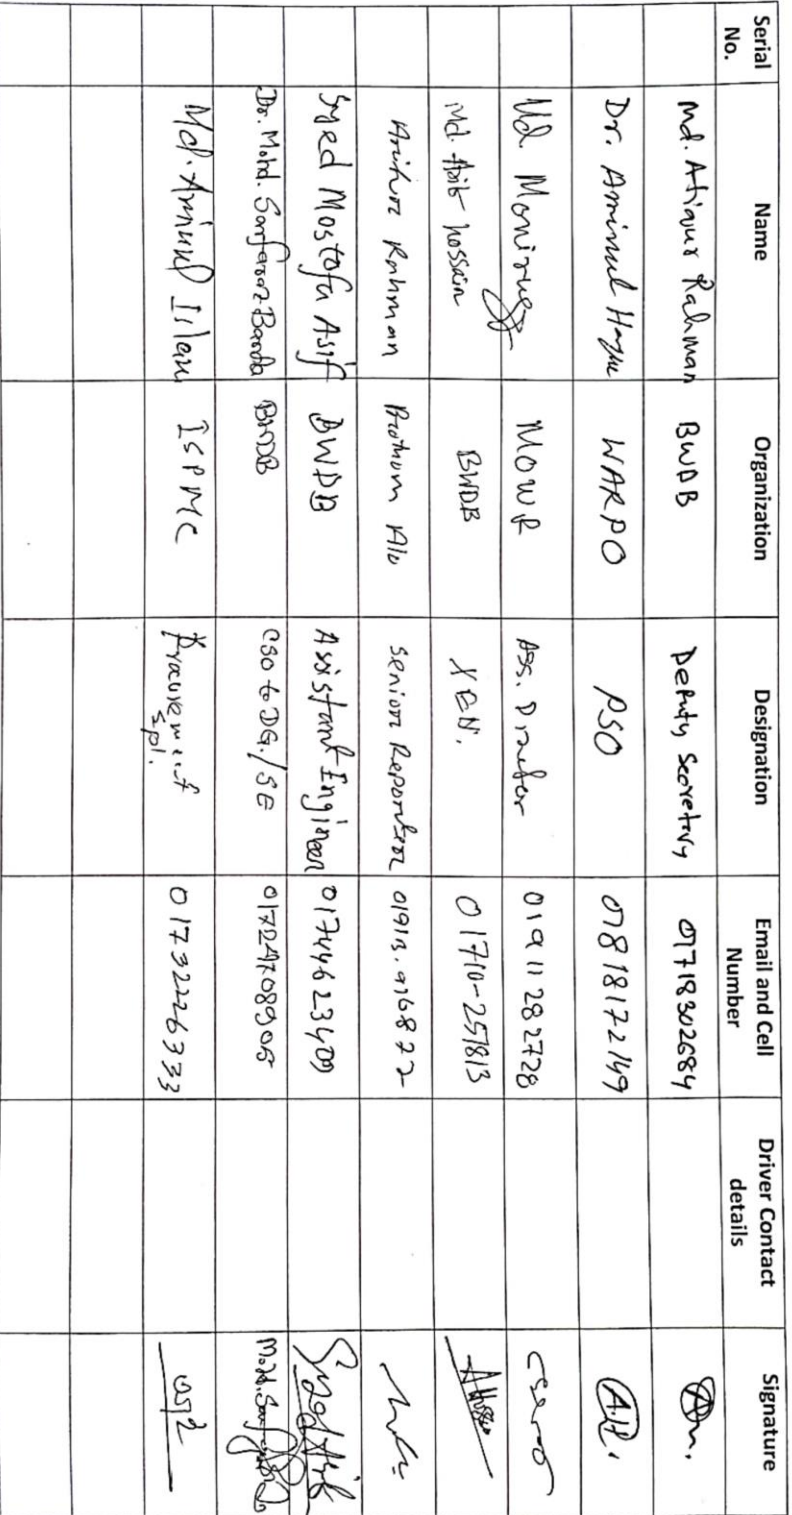 Serial No. Name Organization Designation Email and Cell Number Driver Contact details Signature
Md. Atiqur Rahman BWDB Deputy Secretary 01718302684
Dr. Aminul Haque WARPO PSO 01818172149
Md. MOWR Ass. Director 01911282728
Md. Asib hossain BWDB XEN. 01710-251813
Arifur Rahman Prothom Alo Senior Reporter 01913.916872
Syed Mostofa Asif BWDB Assistant Engineer 01744623409 Syed Asif
Dr. Mohd. BWDB CSO to DG./SE 01724708905 Mohd.
Md. Aminul Islam ISPMC Procurement spl. 01732226333